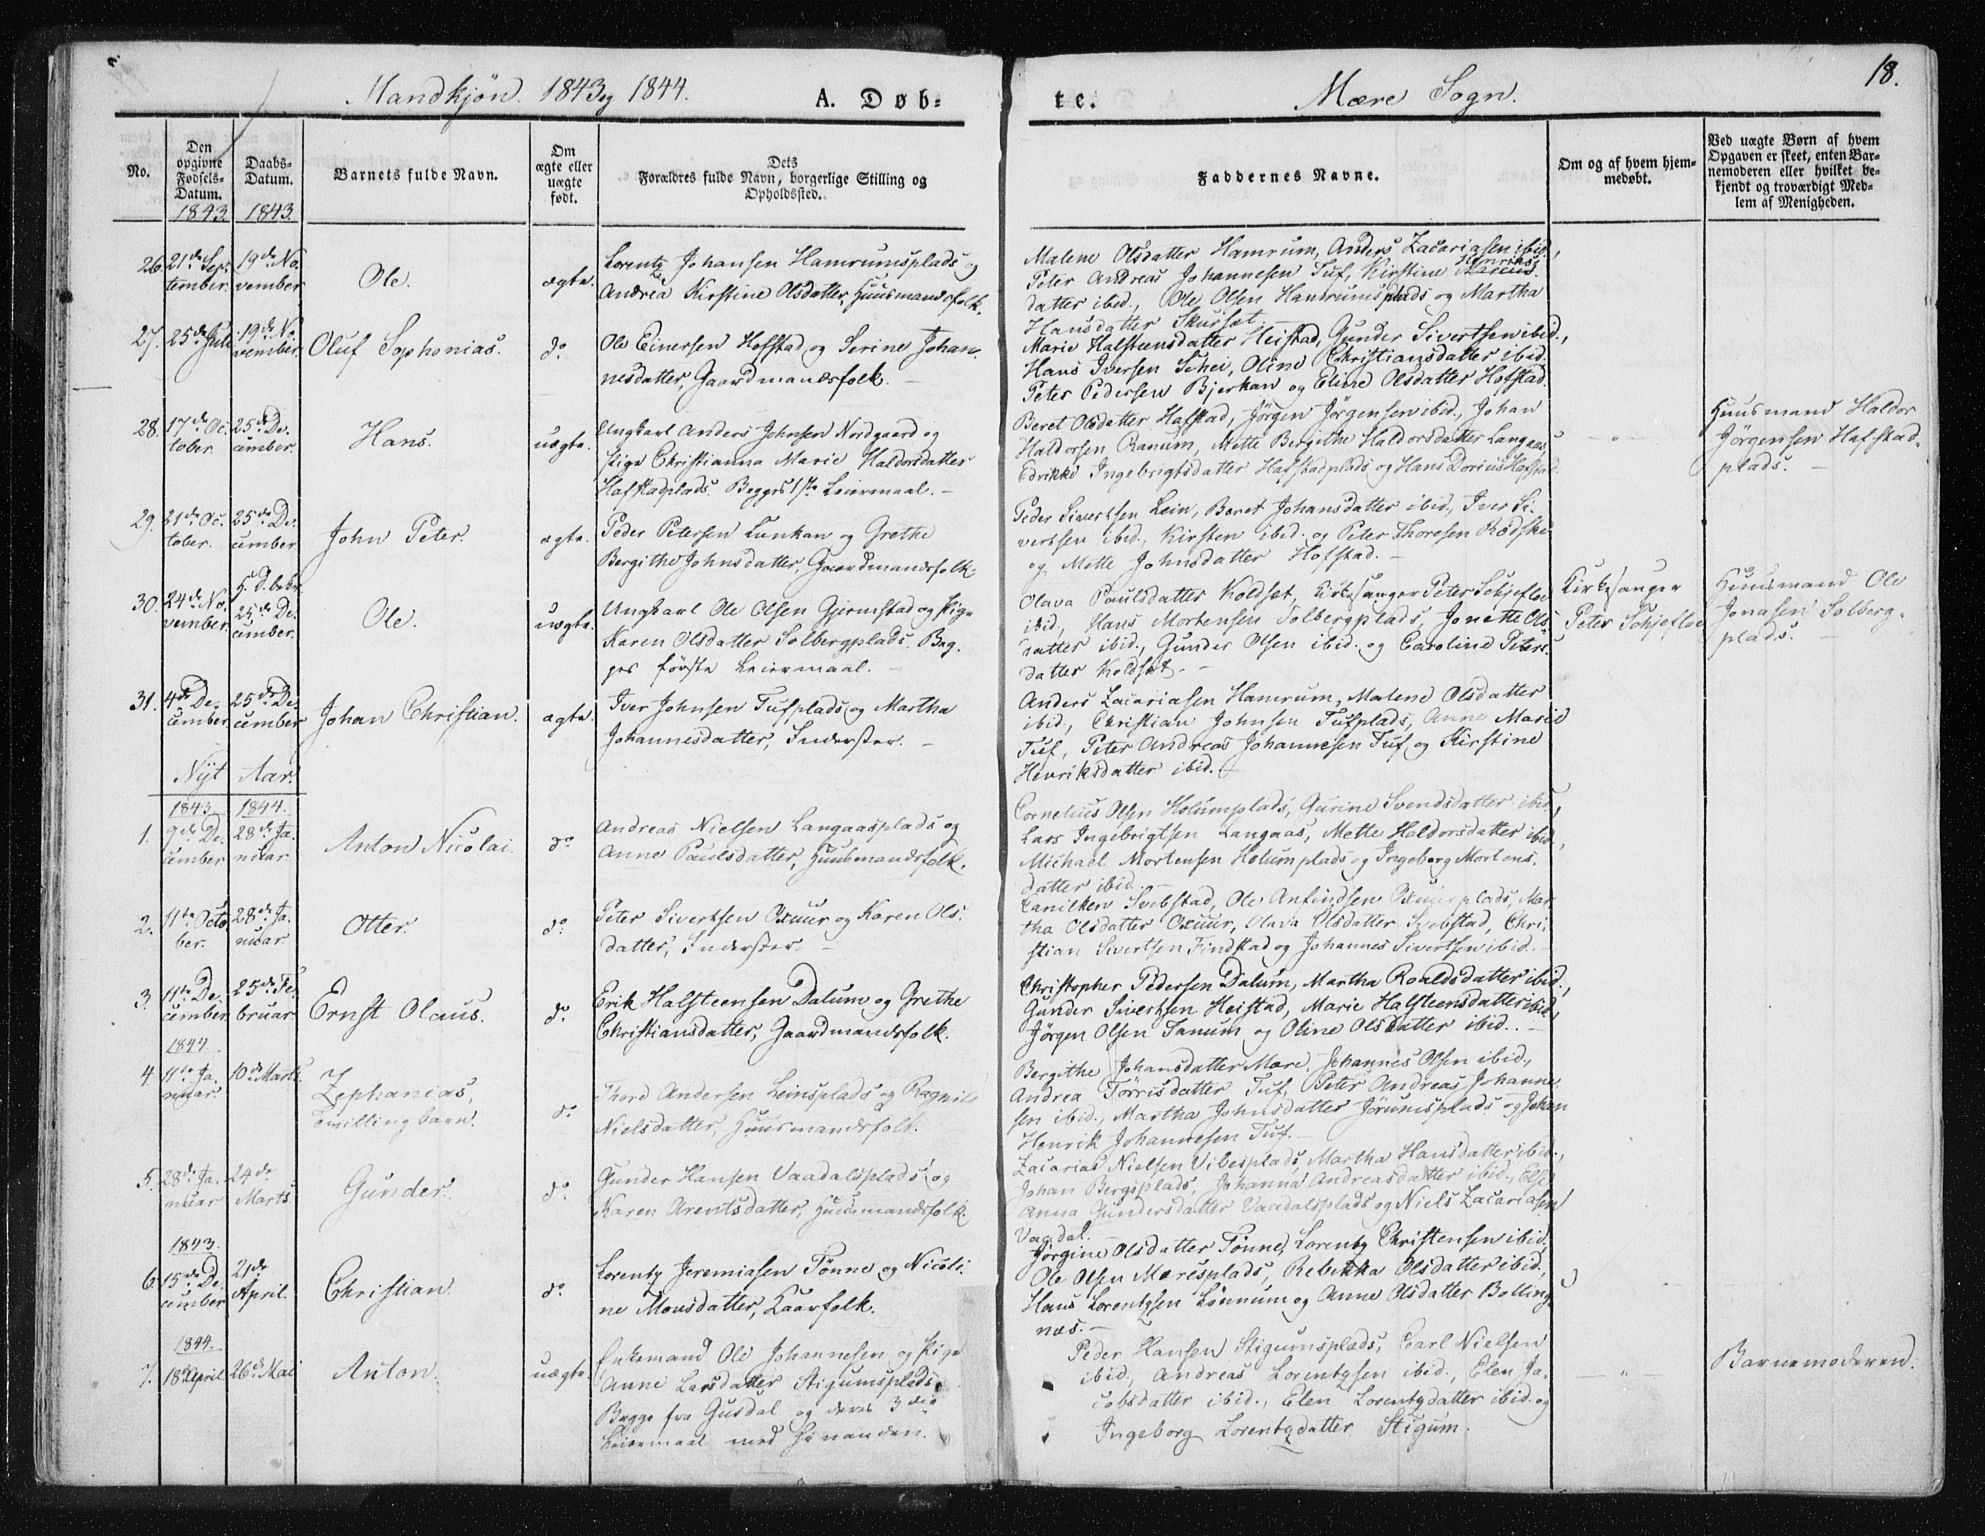 Mandkjön. 1843 og 1844.
A. Døb-
te.
Mære Sogn.
18.
No.
Den opgivne Fødsels-Datum.
1843
Daabs-Datum.
1843.
Barnets fulde Navn.
Om ægte eller uægte født.
Dets
Forældres fulde Navn, borgerlige Stilling og
Opholdssted.
Faddernes Navne.
Om og af hvem hjem-
medøbt.
Ved uægte Børn af hvem
Opgaven er skeet, enten Bar-
nemoderen eller hvilket be-
kjendt og troværdigt Med-
lem af Menigheden.
26. 21de Sep-
tember.
19de No-
vember
Ole.
ægte.
Lorentz Johansen Hamrumsplads og
Andrea Kirstine Olsdatter, Huusmandsfolk.
Malene Olsdatter Hamrum, Anders Zacariasen ibid.,
Peter Andreas Johannesen Tuf, Kirstine Henriks-
datter ibid., Ole Olsen Hamrumsplads og Martha
Hansdatter Skurset.
27. 25de Juli
19de No-
vember.
Oluf Sophonias.
do
Ole Einersen Hofstad og Serine Johan-
nesdatter, Gaardmandsfolk. -
Marie Halstensdatter Heistad, Gunder Sivertsen ibid.,
Hans Iversen Schei, Oline Christiansdatter ibid.
Peter Pedersen Bjerkan og Eline Olsdatter Hofstad.
28. 17de Oc-
tober.
25de De-
cember.
Hans.
uægte.
Ungkarl Anders Johnsen Nordgaard og
Pige Christianna Marie Haldorsdatter
Hafstadplads. Begges 1ste Leiermaal. -
Beret Olsdatter Hafstad, Jörgen Jörgensen ibid., Johan
Haldorsen Ranum, Mette Bergithe Haldorsdatter Langaas,
Edrikke Ingebrigtsdatter Hafstadplads og Hans Dorius Hafstad.
Huusmand Haldor
Jörgensen Hafstad-
plads. -
29. 21de Oc-
tober.
25de De-
cember
John Peter.
ægte.
Peder Petersen Lunkan og Grethe
Bergithe Johnsdatter, Gaardmandsfolk.
Peder Sivertsen Lein, Beret Johansdatter ibid., Iver Si-
vertsen ibid., Kirsten ibid. og Peter Thoresen Rödske
og Mette Johnsdatter Hofstad. -
30. 24de No-
vember.
25de De-
cember.
Ole.
uægte.
Ungkarl Ole Olsen Gjermstad og Pige
Karen Olsdatter Solbergplads. Beg-
ges første Leiermaal. -
Olava Paulsdatter Koldset, Kirkesanger Peter Schjefloe
ibid., Hans Mortensen Solbergplads, Jonette Ols-
datter ibid., Gunder Olsen ibid. og Caroline Peters-
datter Koldset. -
Kirkesanger
Peter Schjefloe
Huusmand Ole
Jonasen Solberg-
plads. -
31. 4de De-
cember
25de De-
cember
Johan Christian.
ægte.
Iver Johnsen Tufplads og Martha
Johannesdatter, Inderster. -
Anders Zacariasen Hamrum, Malene Olsdatter
ibid., Christian Johnsen Tufplads, Anne Marie
Tuf, Peter Andreas Johannesen Tuf og Kirstine
Henriksdatter ibid. -
Nyt Aar.
1843 1844.
1. 9de De-
cember
28de Ja-
nuar
Anton Nicolai.
do
Andreas Nielsen Langaasplads og
Anne Paulsdatter, Huusmandsfolk.
Cornelius Olsen Holumplads, Gurine Svendsdatter ibid.,
Lars Ingebrigtsen Langaas, Mette Haldorsdatter ibid.,
Michael Mortensen Holumplads og Ingeborg Mortens-
datter ibid. -
2. 11te Octo-
ber.
28de Ja-
nuar
Otter.
do
Peter Sivertsen Oxuur og Karen Ols-
datter, Inderster. -
Svebstad, Ole Anfindsen Oxuurplads, Mar-
tha Olsdatter Oxuur, Olava Olsdatter Svebstad, Chri-
stian Sivertsen Findstad og Johannes Sivertsen ibid.
3. 11te De-
cember
25de Fe-
bruar
Ernst Olaus.
do
Erik Halsteensen Dalum og Grethe
Christiansdatter, Gaardmandsfolk.
Christopher Pedersen Dalum, Martha Roaldsdatter ibid.,
Gunder Sivertsen Heistad, Marie Halsteensdatter ibid.,
Jörgen Olsen Tanum og Oline Olsdatter ibid. -
1844
4. 11te Ja-
nuar
10de Marts.
Zephanias,
Tvillingbarn.
do
Thord Andersen Leinsplads og Ragnil
Nielsdatter, Huusmandsfolk.
Bergithe Johansdatter Mære, Johannes Olsen ibid.,
Andrea Törrisdatter Tuf, Peter Andreas Johanne-
sen ibid., Martha Johnsdatter Jörumsplads og Johan
Henrik Johannesen Tuf. -
5. 28de Ja-
nuar
24de
Marts.
Gunder.
do
Gunder Hansen Vaadalsplads og
Karen Arentsdatter, Huusmandsfolk.
Zacarias Nielsen Vibesplads, Martha Hansdatter ibid.,
Johan Bergsplads, Johanna Andreasdatter ibid., Else
Anna Gundersdatter Vaadalsplads og Niels Zacariasen
Vaadal. -
1843.
6. 15de De-
cember
21de
April.
Christian.
do
Lorentz Jeremiasen Tönne og Nicoli-
ne Monsdatter, Kaarfolk.
Jörgine Olsdatter Tönne, Lorentz Christensen ibid.,
Ole Olsen Mæresplads, Rebekka Olsdatter ibid.,
Hans Lorentzsen Lönnum og Anne Olsdatter Bolling-
næs. -
1844.
7. 18de April
26de Mai
Anton.
uægte.
Enkemand Ole Johannesen og Pige
Anne Larsdatter Stigumsplads.
Begge fra Gusdal og deres 3die
Leiermaal med hinanden.
Peder Hansen Stigumsplads, Carl Nielsen
ibid., Andreas Lorentzsen ibid., Elen Ja-
cobsdatter ibid., Elen Lorentzdatter ibid. og
Ingeborg Lorentzdatter Stigum.
Barnemoderen.